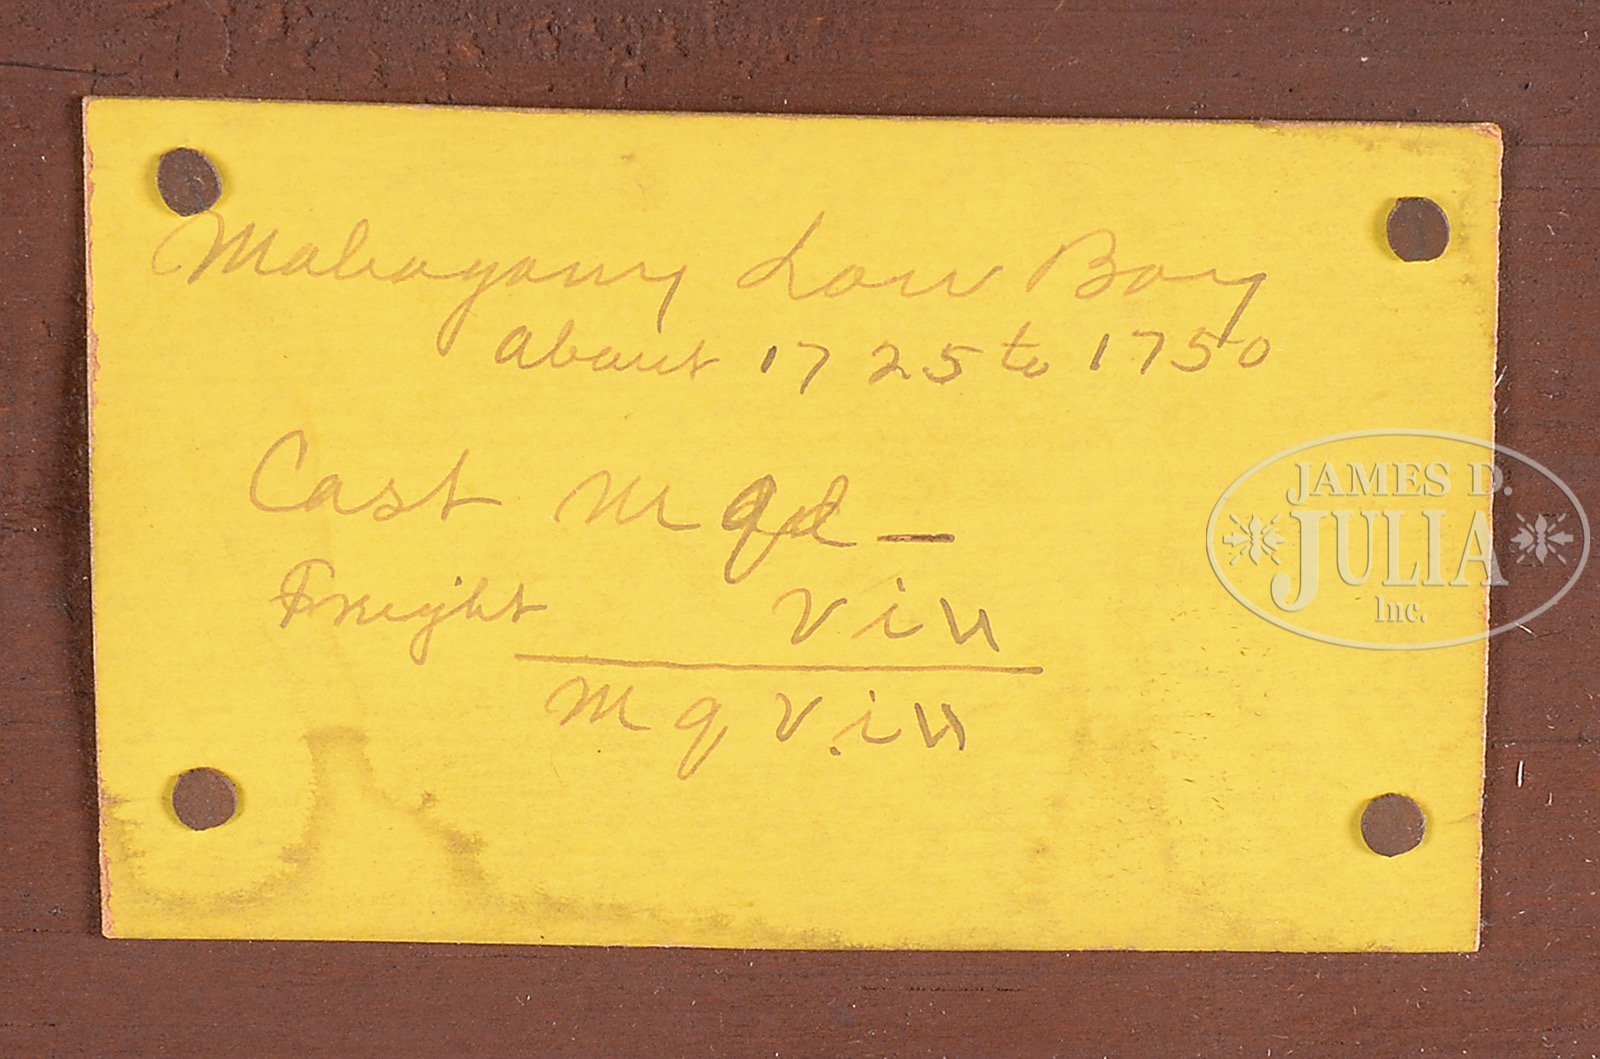 Mahogany Low Boy
About 1725 to 1750
Cost M q d —
Freight V i n
M q V i n
JAMES D.
JULIA
Inc.